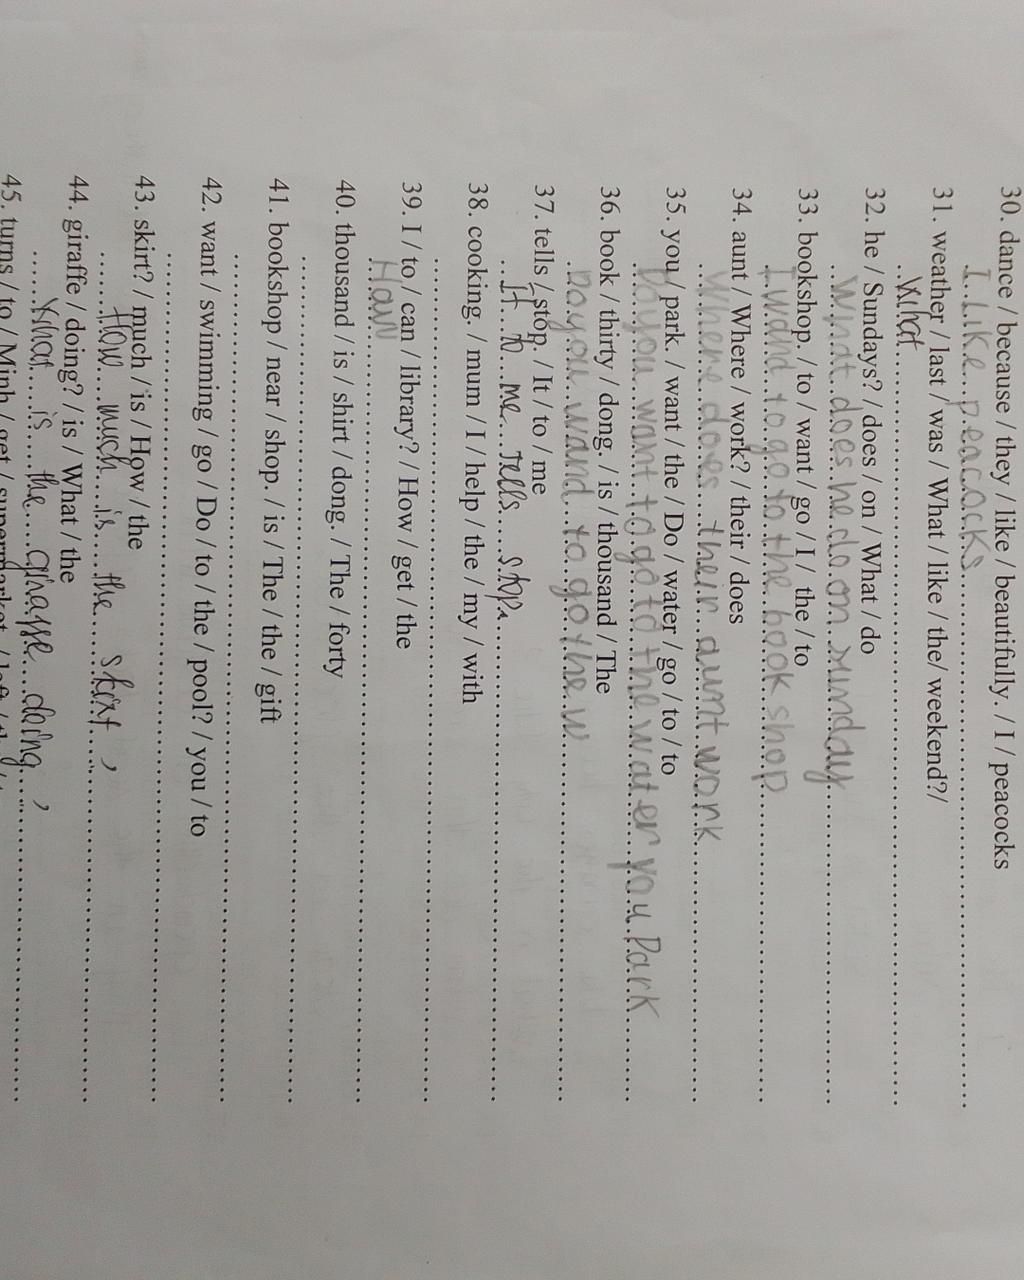 30. dance / because / they / like / beautifully. / I / peacocks
I like peacocks
31. weather / last / was / What / like / the/ weekend?/
What
32. he / Sundays? / does / on / What / do
What does he do on sunday
33. bookshop. / to / want / go / I / the / to
I wand to go to the book shop
34. aunt / Where / work? / their / does
Where does their aunt work
35. you / park. / want / the / Do / water / go / to / to
Do you want to go to the water you Park
36. book / thirty / dong. / is / thousand / The
Do you wand to go the w
37. tells / stop. / It / to / me
It to me tells stop.
38. cooking. / mum / I / help / the / my / with
39. I / to / can / library? / How / get / the
Haw
40. thousand / is / shirt / dong. / The / forty
41. bookshop / near / shop. / is / The / the / gift
42. want / swimming / go / Do / to / the / pool? / you / to
43. skirt? / much / is / How / the
How much is the skirt,
44. giraffe / doing? / is / What / the
What is the giraffe doing,
45. turns / to / Minh / get / supermarket. / left / the